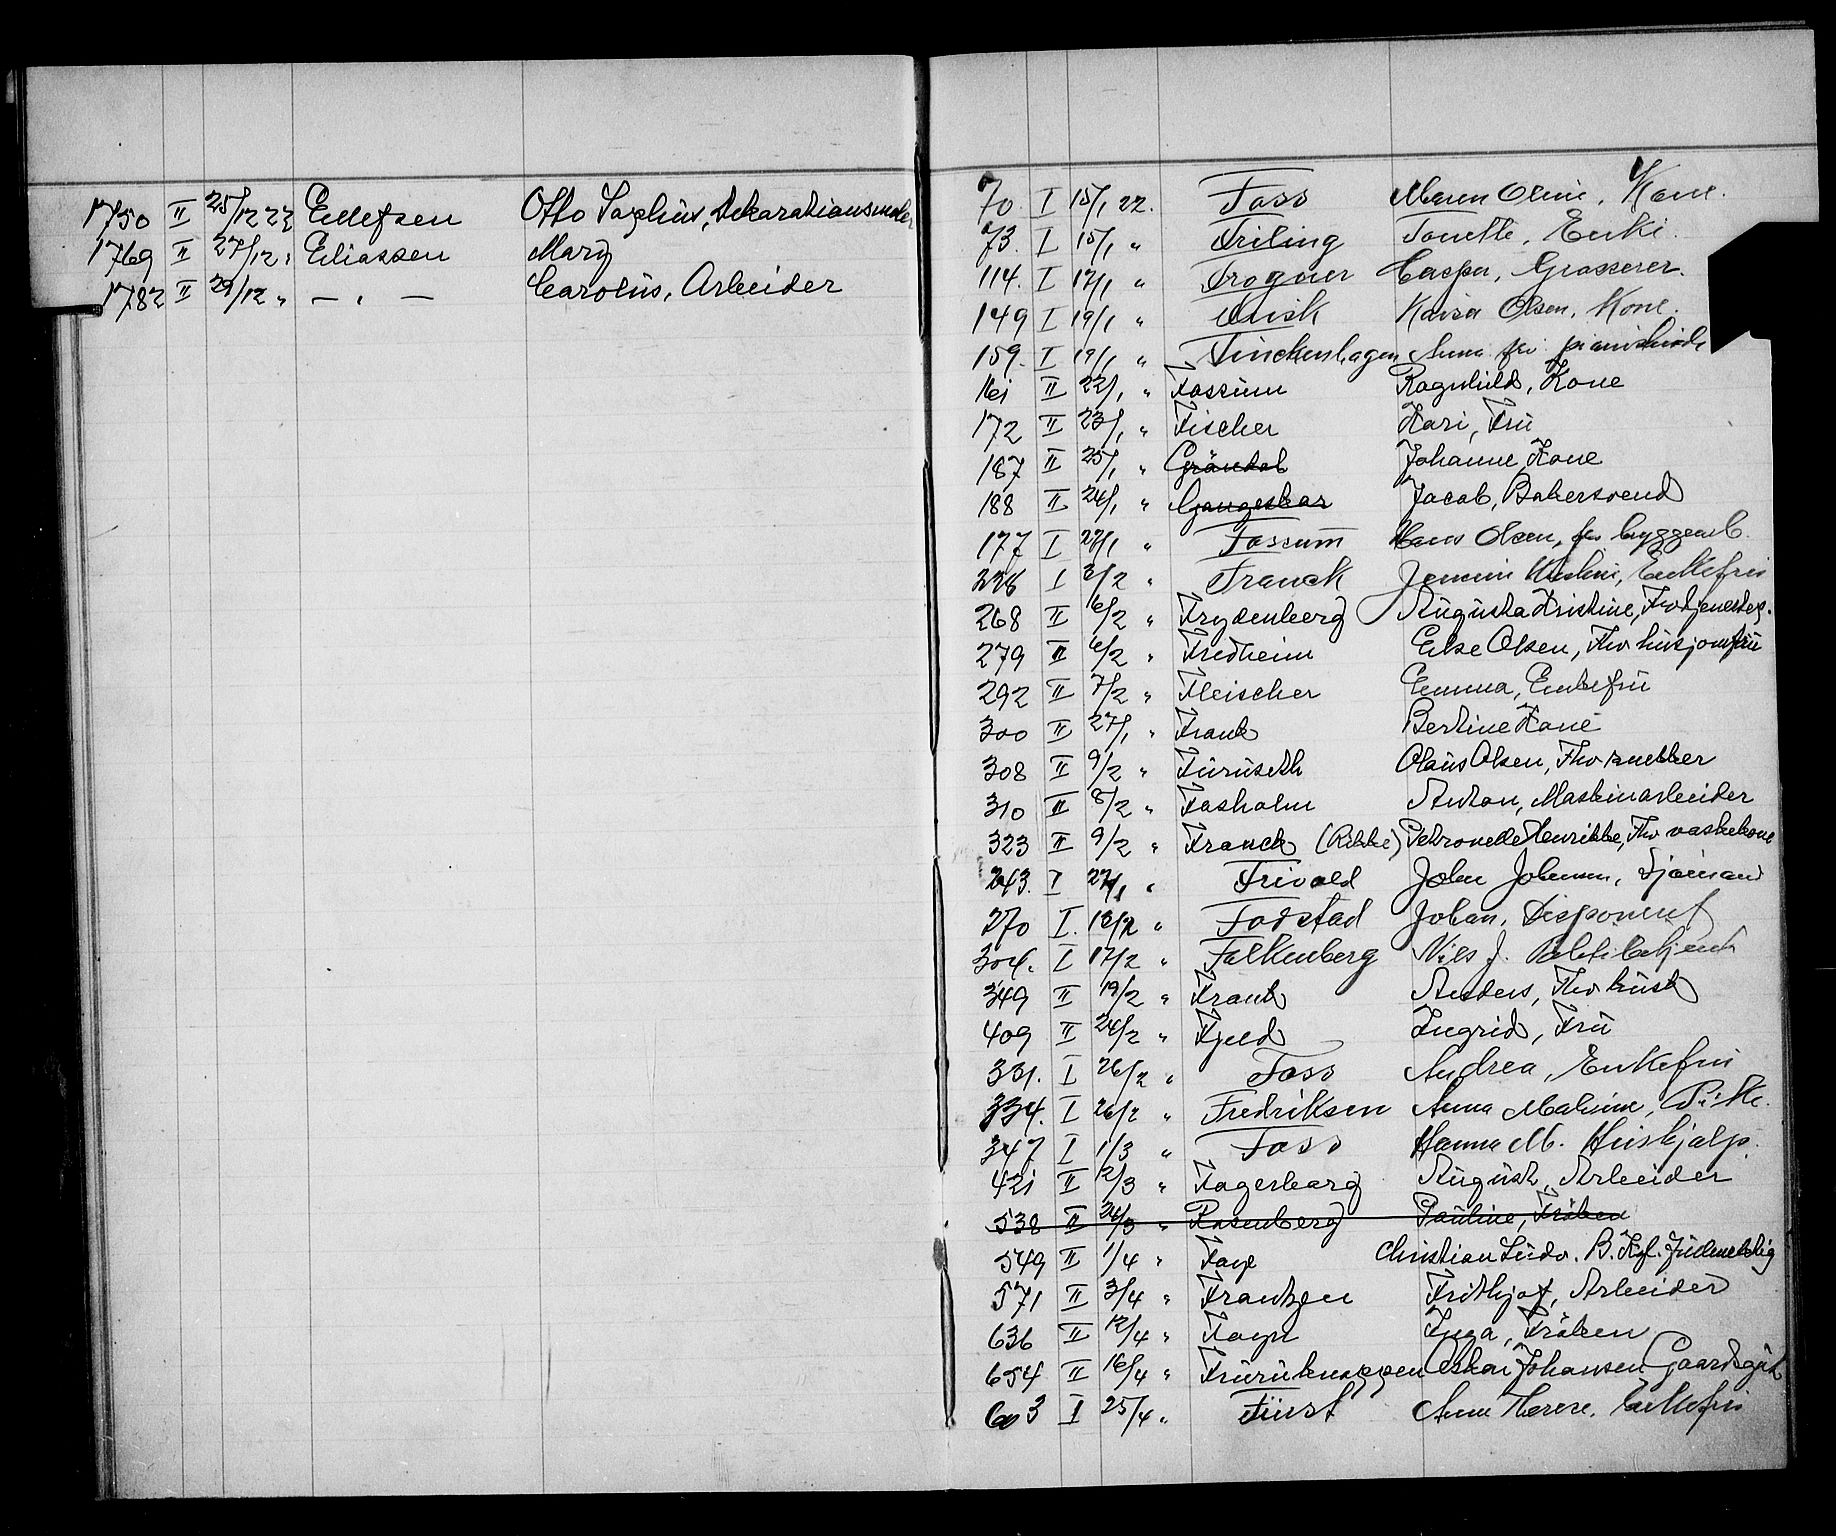 1750 II 25/12 22 Ellefsen Otto Sophus, Dekorationsmaler
1769 II 27/12 " Eliassen Mary
1782 II 29/12 " — " — Carolus, Arbeider
70 I 15/1 22. Foss Maren Oline, Kone.
73. I 15/1 " Friling Tonette, Enke.
114. I 17/1 " Frogner Casper, Grosserer.
149 I 19/1 " Kaisa Olsen, Kone.
159. I 19/1 " Finckenhagen Anna
161 II 22/1 " Fossum Ragnhild, Kone
172 II 23/1 " Fischer Kari, Frü
187 II 25/1 " Gröndal Johanne, Kone
188 II 24/1 " Gaugeskar Jacob, Bakersvend
177 I 27/1 " Fossum Hans Olsen, byggearb.
228 I 3/2 " Franck Enkefru
268 II 6/2 " Frydenberg Augusta Kristine, Fhv tjenestep.
279 II 6/2 " Fredheim Else Olsen, Fhv husjomfrü
292 II 7/2 " Fleischer Emma, Enkefrü
300 II 27/1 " Frank Bertine Kone
308 II 9/2 " Furuseth Olaus Olsen, Fhv snekker
310 II 8/2 " Fosholm Anton, Maskinarbeider
323 II 9/2 " Franck (Rikke) Petronelle Henrikke, Fhv vaskekone
243. I 27/1 " Frivold John Johansen, Sjömand
270 I. 13/2 " Fodstad Johan, Disponent
304. I 17/2 " Falkenberg Nils J. Politibetjent
349 II 19/2 " Frank Anders, Fhv kusk
409 II 24/2 " Fjeld Ingrid, Frü
331. I 26/2 " Foss Andrea, Enkefru
334. I 26/2 " Fredriksen Anna Maline, Pike.
347 I 1/3 " Foss Hanna M. Hushjælp.
421 II 2/3 " Fagerborg August, Arbeider
538 II 24/3 " Rosenberg Pauline, Fröken
549 II 1/4 " Faye Christian Ludv. B. Kgl. Fuldmektig
571 II 3/4 " Frantzen Fridtjof, Arbeider
636 II 12/4 " Fagn Inga, Fröken
654 II 16/4 " Furuknappen Oskar Johansen, Gaardsgut
603 I 25/4 " Fürst Anna Therese, Enkefru